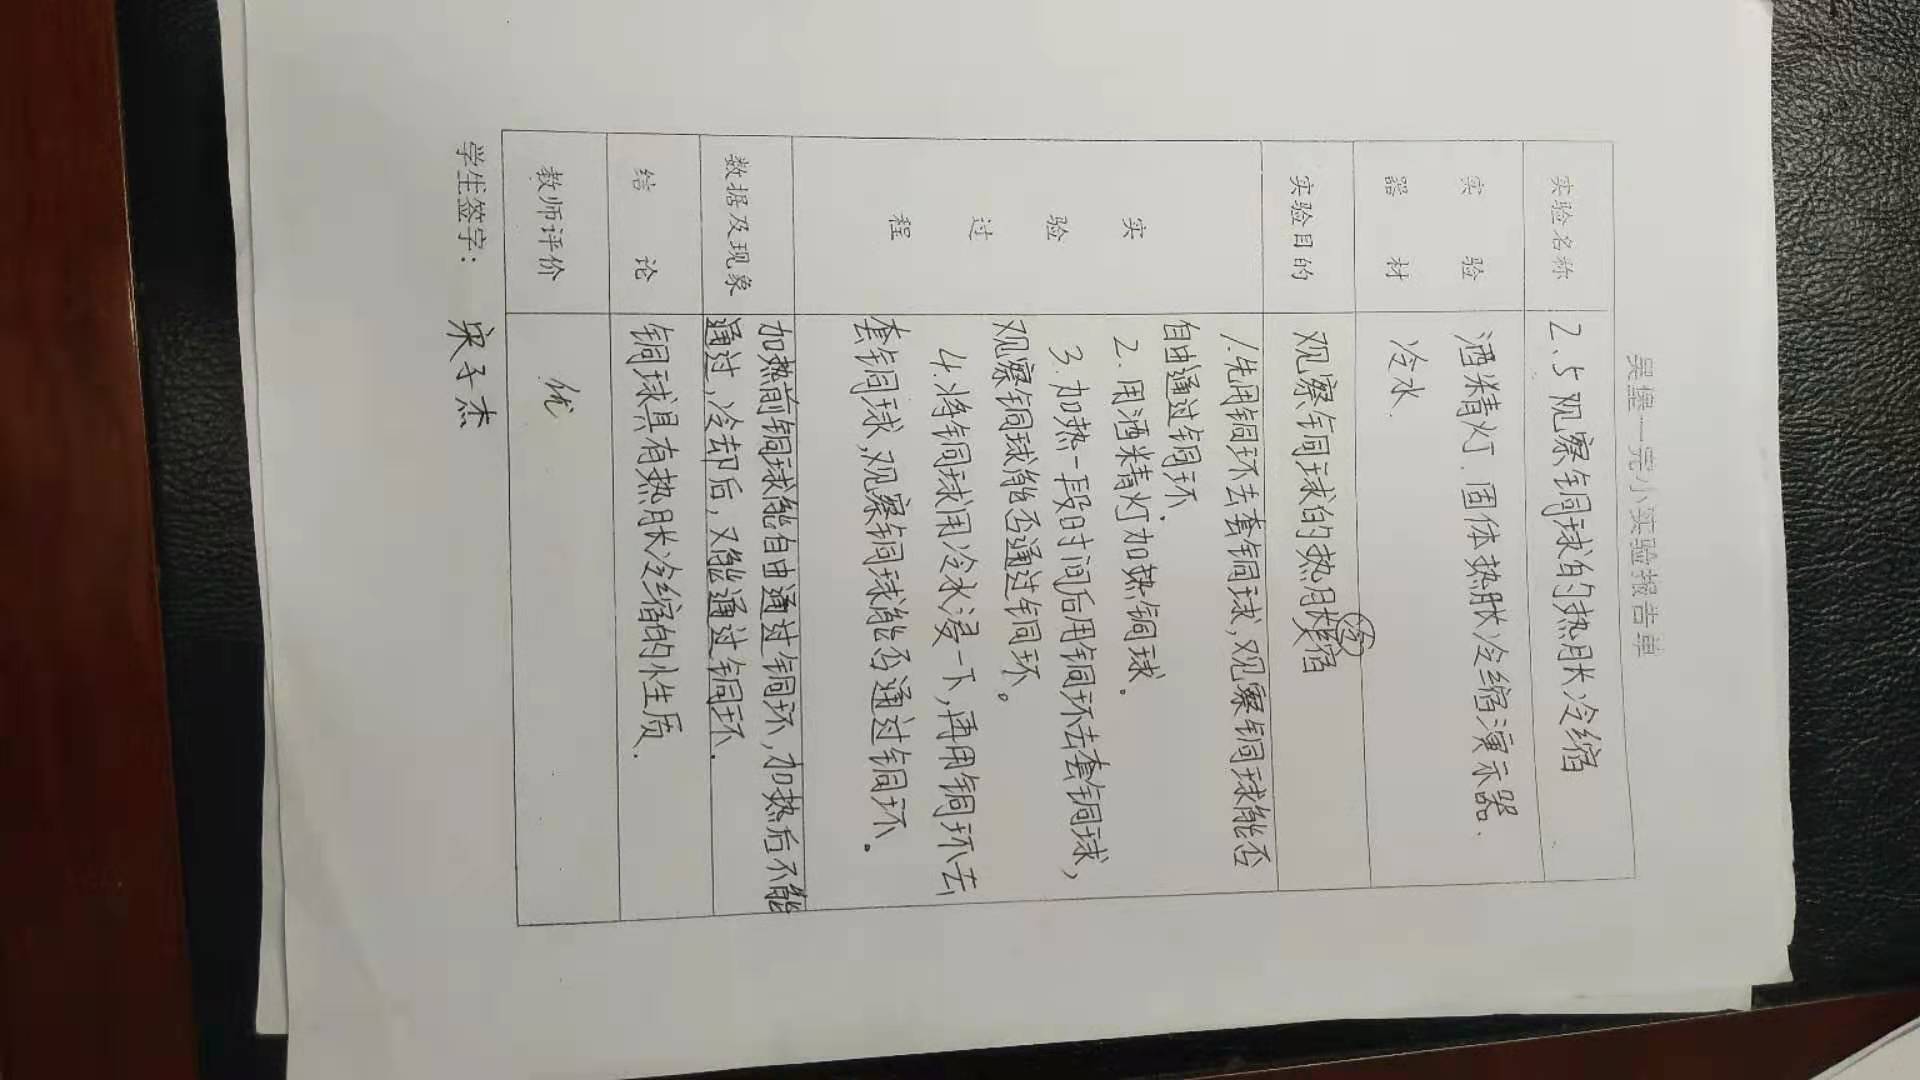 吴堡一完小实验报告单
实验名称 2、5观察铜球的热胀冷缩
实验 酒精灯.固体热胀冷缩演示器.
器材 冷水.
实验目的 观察铜球的热胀冷缩
实验过程 1.先用铜环去套铜球,观察铜球能否
自由通过铜环.
2.用酒精灯加热铜球。
3.加热一段时间后用铜环去套铜球,
观察铜球能否通过铜环。
4.将铜球用冷水浸一下,再用铜环去
套铜球,观察铜球能否通过铜环。
数据及现象 加热前铜球能自由通过铜环,加热后不能
通过,冷却后,又能通过铜环.
结论 铜球具有热胀冷缩的性质.
教师评价 优
学生签字: 宋子杰